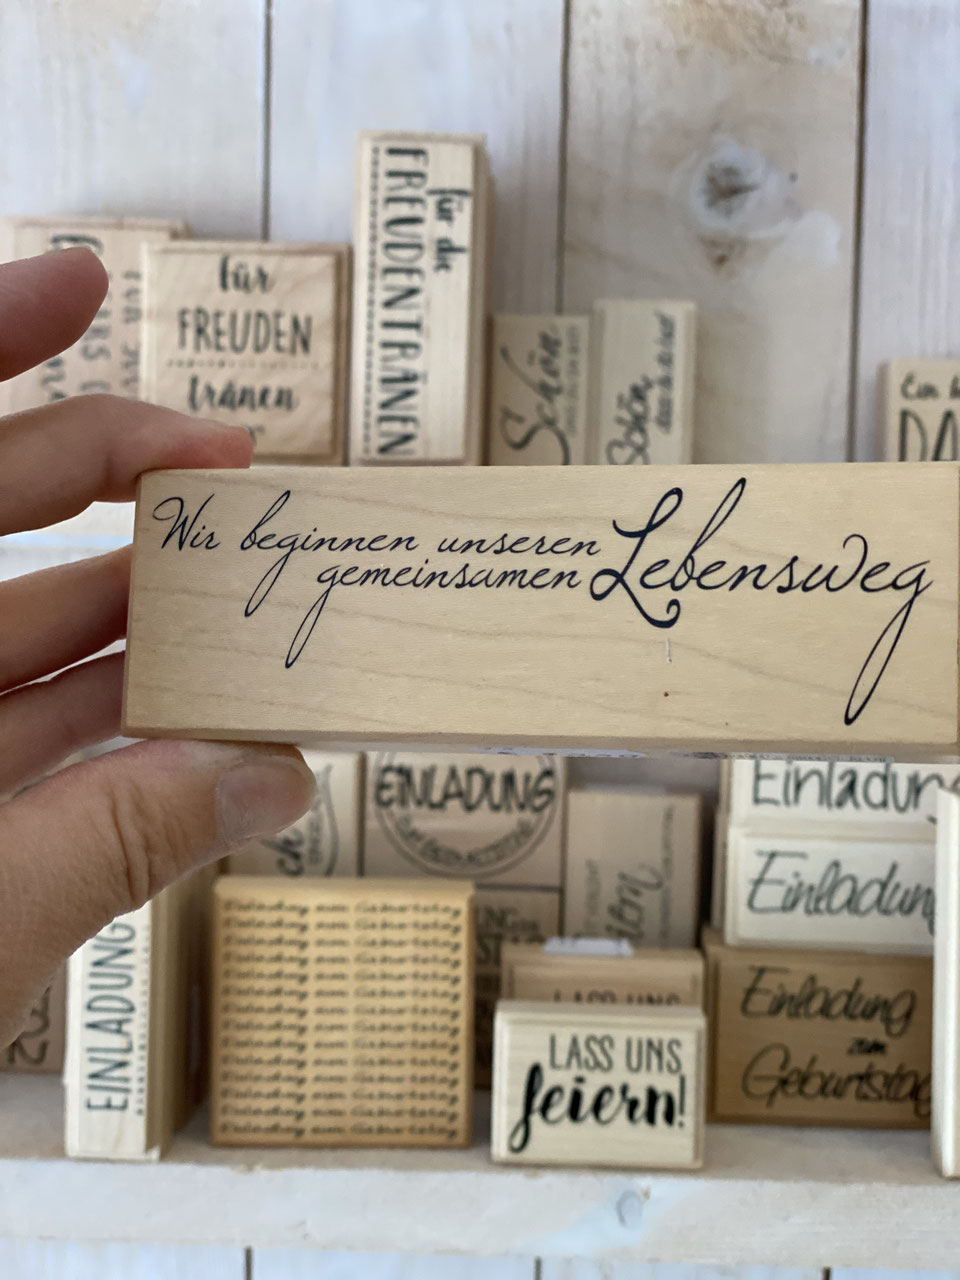 für
FREUDEN
tränen
für die
FREUDENTRÄNEN
Schön,
Schön,
DA
Wir beginnen unseren
gemeinsamen Lebensweg
EINLADUNG
Einladung
Einladung
EINLADUNG
Einladung zum Geburtstag
Einladung zum Geburtstag
Einladung zum Geburtstag
Einladung zum Geburtstag
Einladung zum Geburtstag
Einladung zum Geburtstag
Einladung zum Geburtstag
Einladung zum Geburtstag
Einladung zum Geburtstag
Einladung zum Geburtstag
Einladung zum Geburtstag
Einladung zum Geburtstag
Einladung zum Geburtstag
Einladung zum Geburtstag
LASS UNS
LASS UNS
feiern!
Einladung
zum
Geburtstag